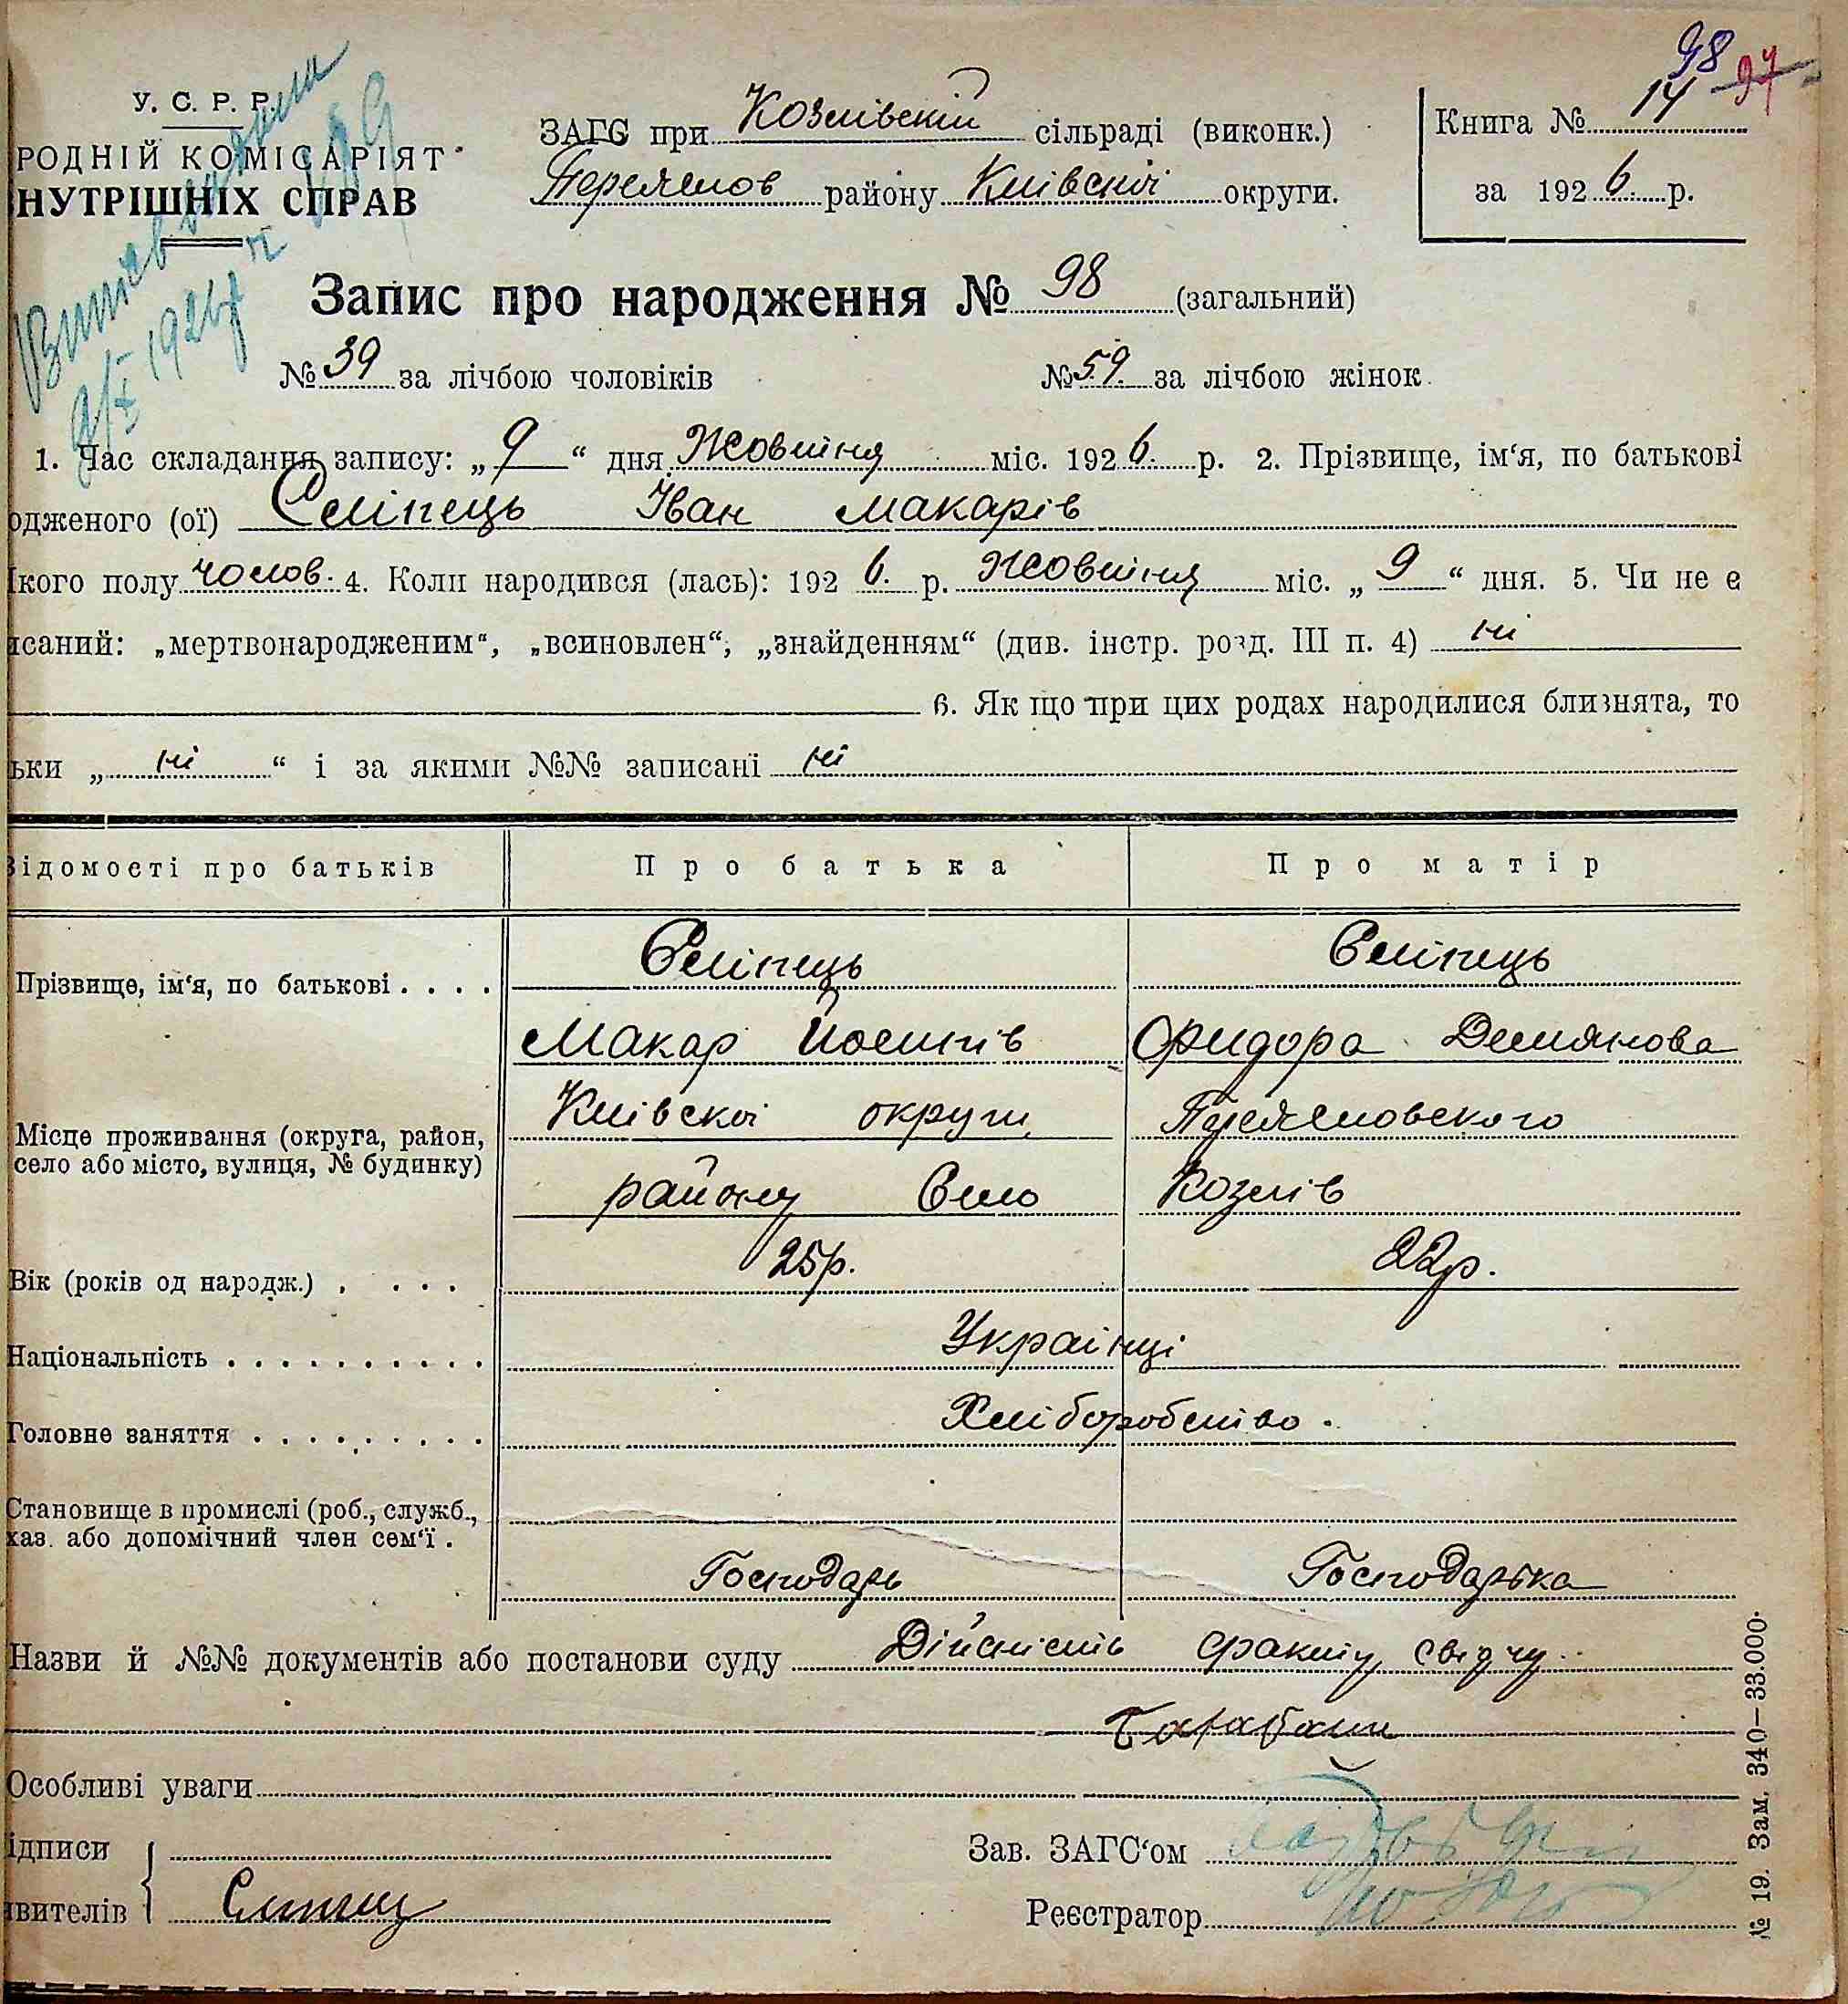 98
14 97
У. С. Р. Р.
РОДНІЙ КОМІСАРІЯТ
НУТРІШНІХ СПРАВ
ЗАГС при Козлівскій сільраді (виконк.)
Переяслов району Киівскоі округи.
Книга №
за 192 6. р.
Запис про народження № 98 (загальний)
№ 39 за лічбою чоловіків № 59. за лічбою жінок
1. Час складання запису: „ 9 “ дня Жовтня міс. 192 6. р. 2. Прізвище, ім'я, по батькові
одженого (ої) Сліпець Іван Макарів
кого полу чолов. 4. Коли народився (лась): 192 6. р. Жовтня міс. „ 9 “ дня. 5. Чи не є
исаний: „мертвонародженим“, „всиновлен“, „знайденням“ (див. інстр. розд. III п. 4) ні
6. Як що при цих родах народилися близнята, то
ьки „ ні “ і за якими №№ записані ні
Відомості про батьків Про батька Про матір
Прізвище, ім'я, по батькові . . . . Сліпець Сліпець
Макар Йосипів Фидора Демянова
Місце проживання (округа, район, село або місто, вулиця, № будинку) Киівскоі округи Переясловского
району Село Козлів
Вік (років од народж.) . . . . 25р. 22р.
Національність . . . . . . . . . . Украінці
Головне заняття . . . . . . . . . Хліборобство.
Становище в промислі (роб., служб.,
хаз. або допомічний член сем'ї .
Господарь Господарька
Назви й №№ документів або постанови суду Дійсність факту свідчу
Особливі уваги
ідписи
явителів
Зав. ЗАГС'ом
Реєстратор
№ 19. Зам. 340–33.000.